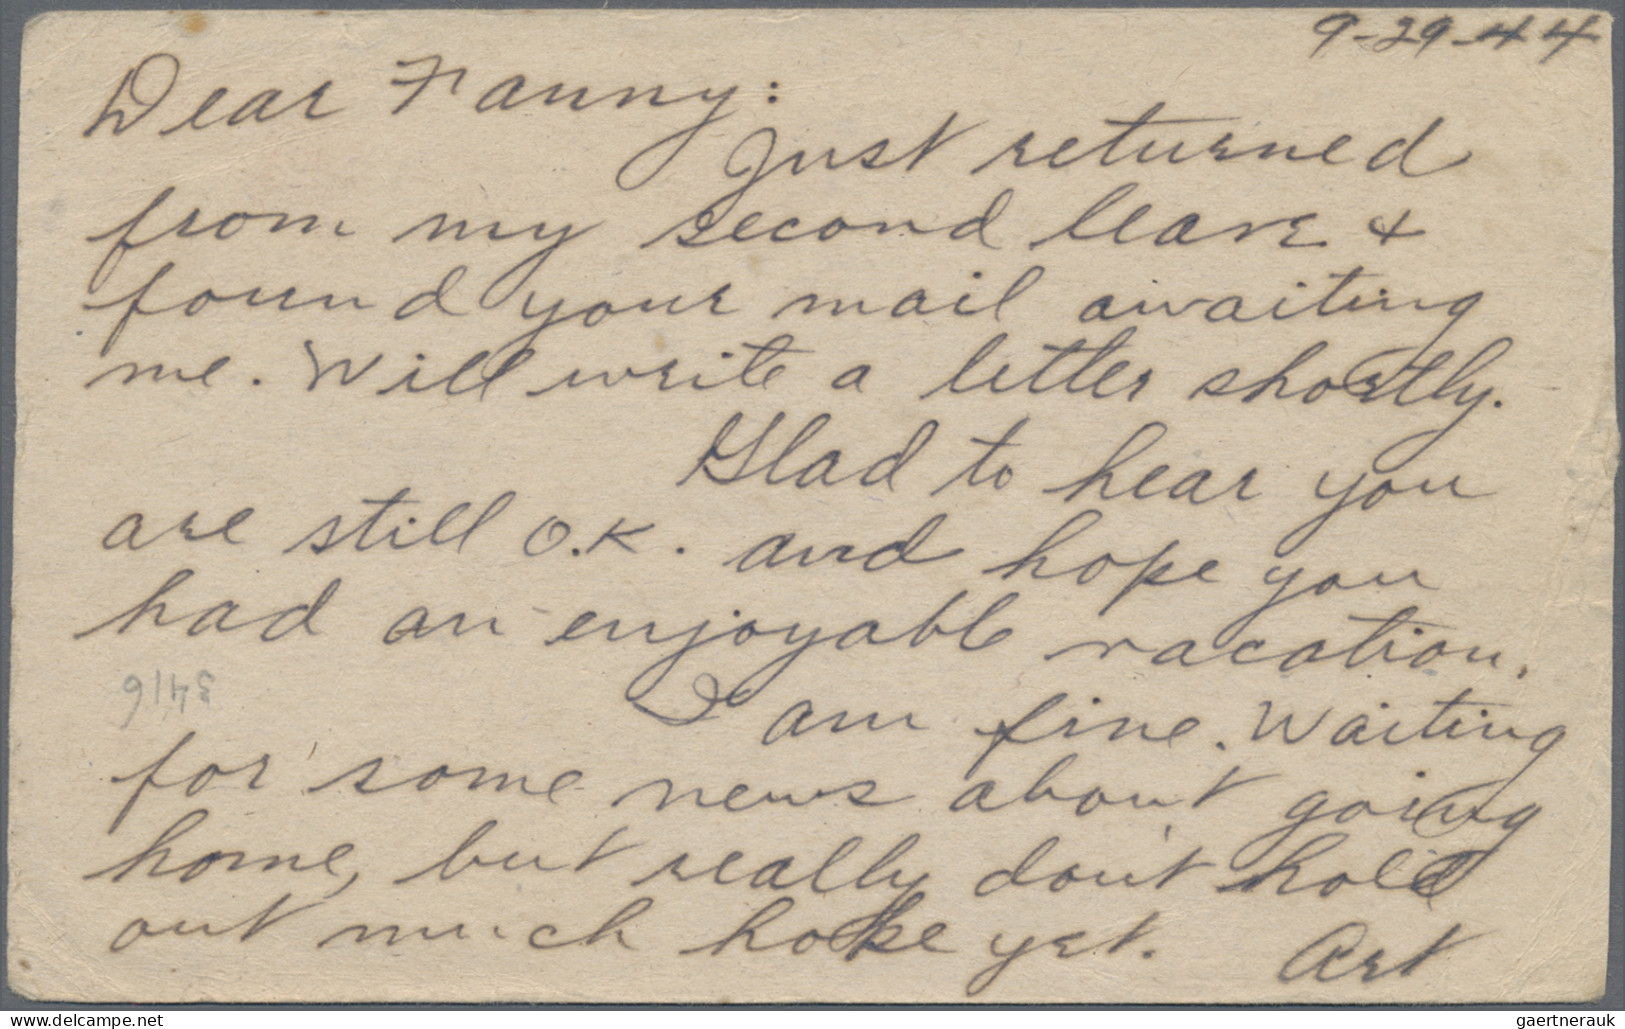 9-29-44
Dear Fanny:
Just returned
from my second leave +
found your mail awaiting
me. Will write a letter shortly.
Glad to hear you
are still O.K. and hope you
had an enjoyable vacation.
3416
I am fine. Waiting
for some news about going
home, but really don't hold
out much hope yet. Art
www.delcampe.net
gaertnerauk